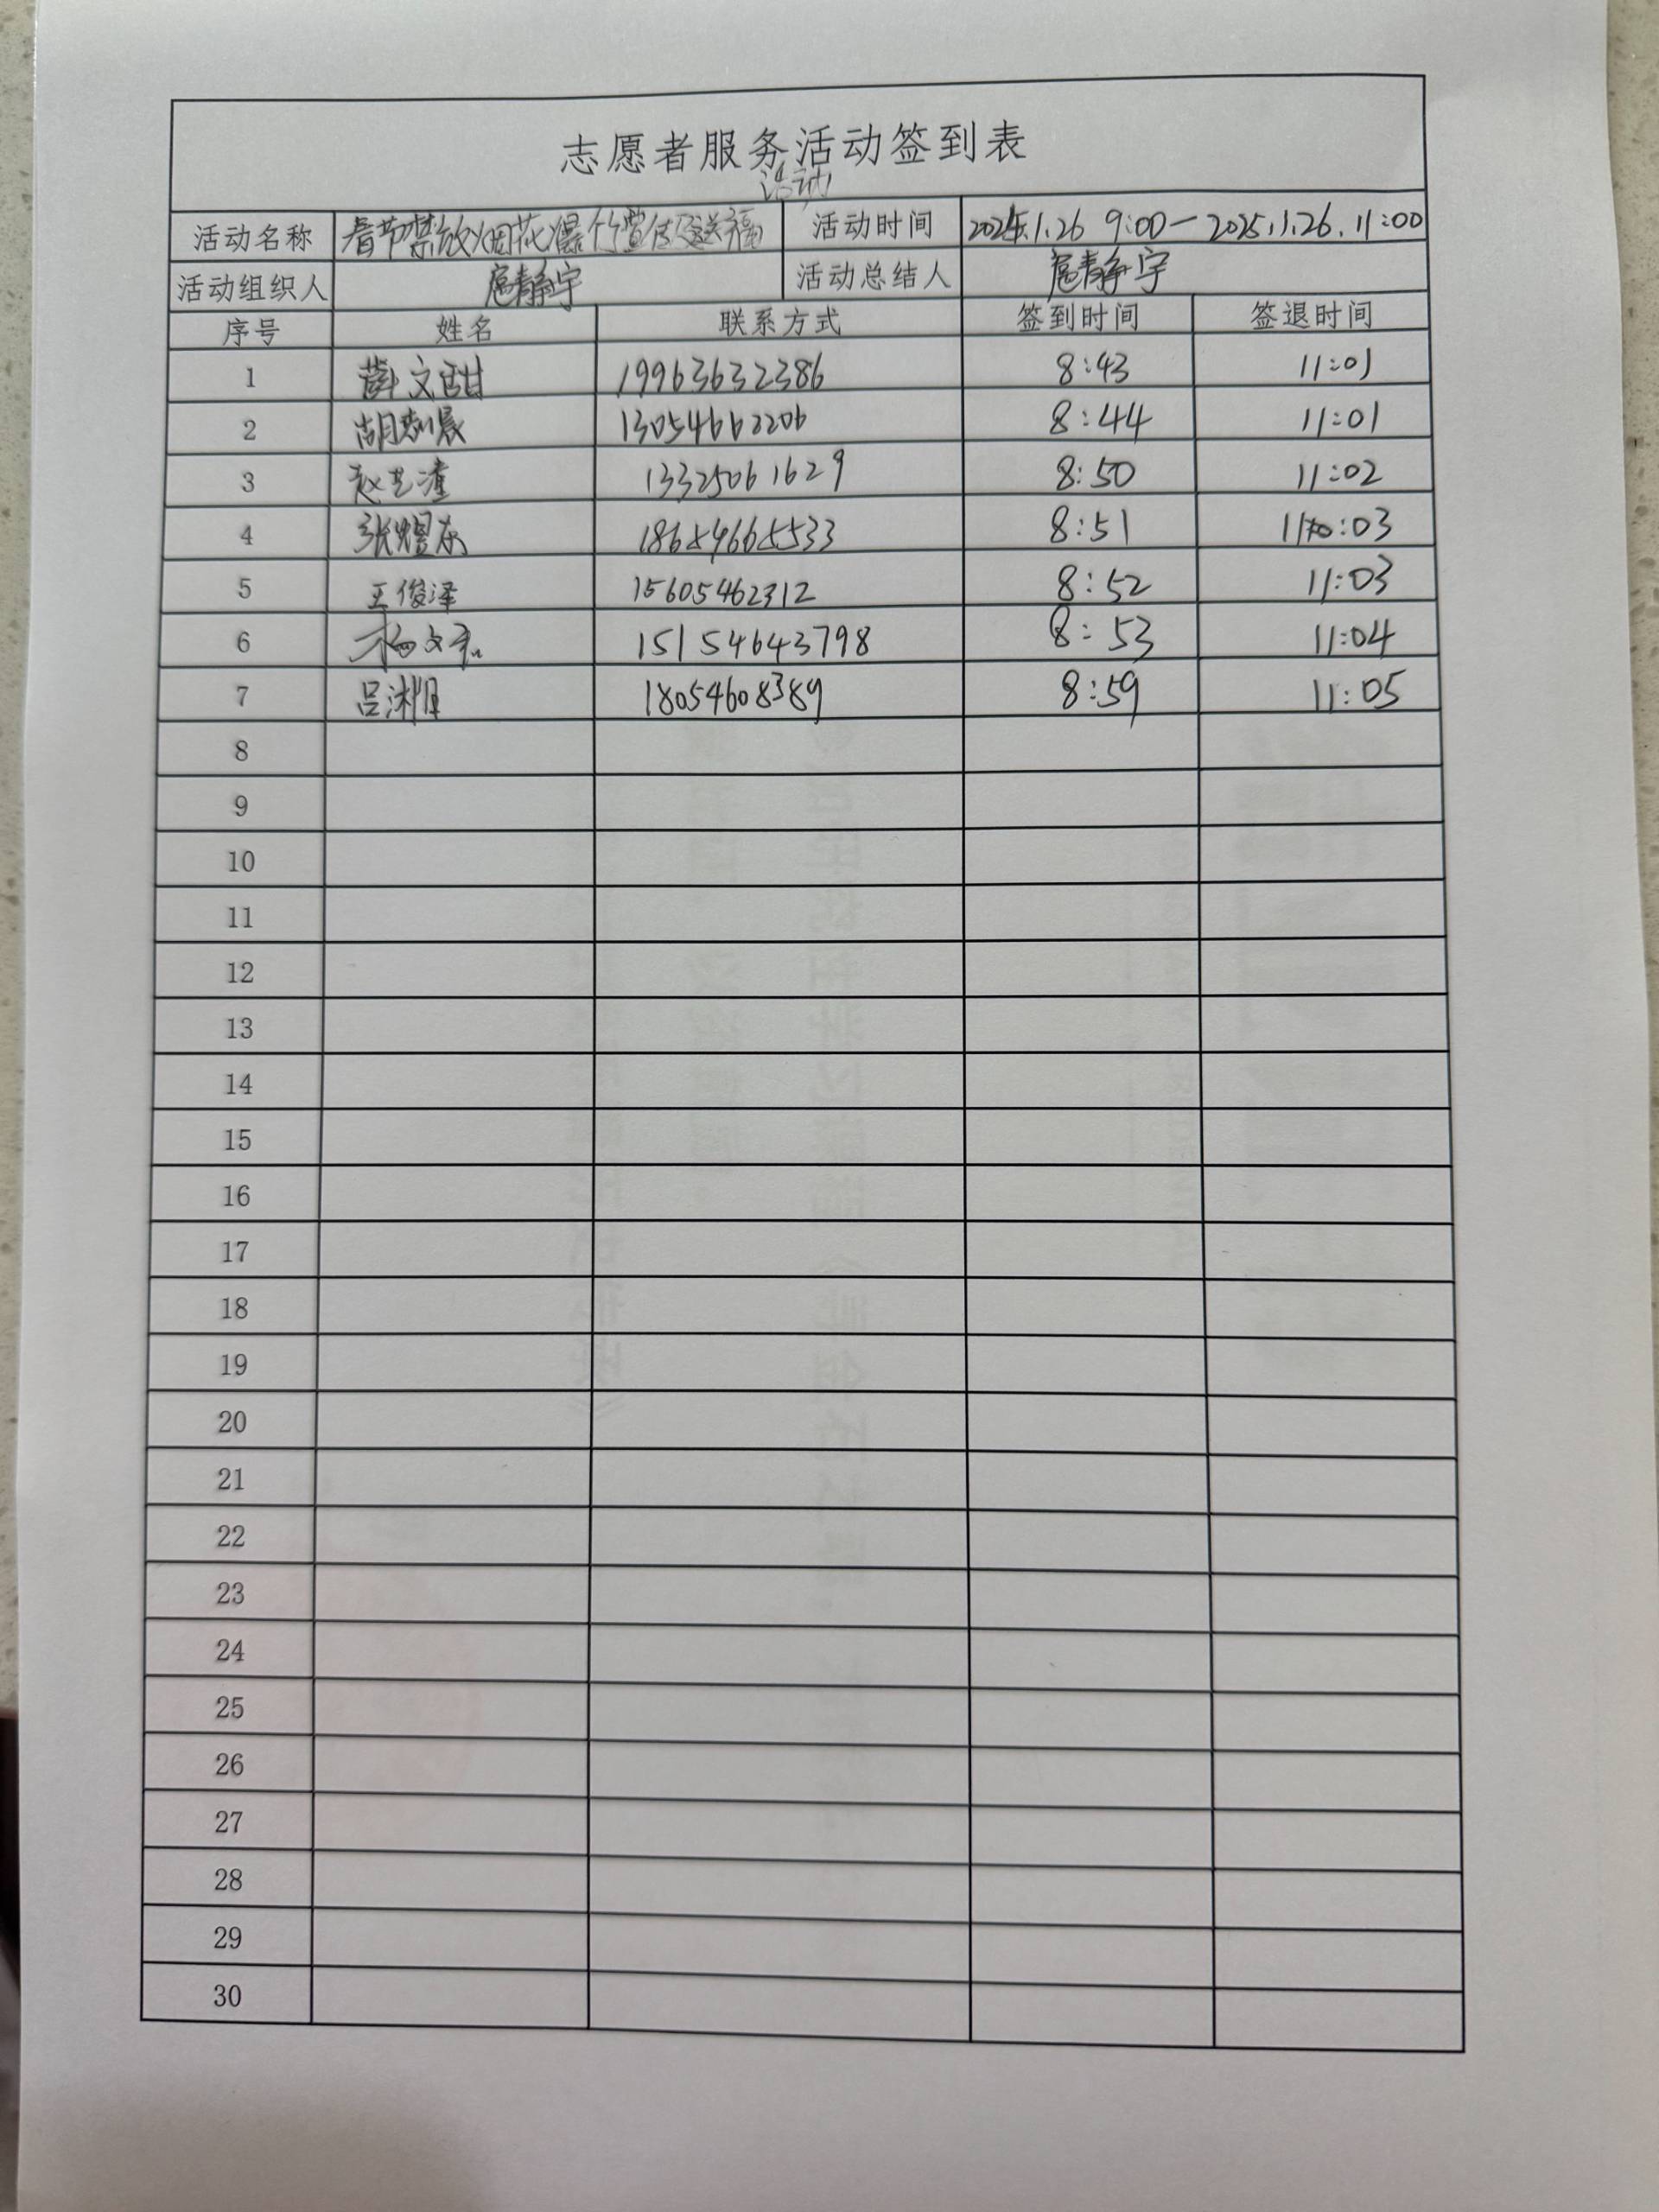 志愿者服务活动签到表
活动
活动名称 春节禁放烟花爆竹宣传及送福 活动时间 2025.1.26 9:00—2025.1.26.11:00
活动组织人 扈静宇 活动总结人 扈静宇
序号 姓名 联系方式 签到时间 签退时间
1 薛文甜 19963632386 8:43 11:01
2 胡 晨 13054662206 8:44 11:01
3 赵艺潼 13325061629 8:50 11:02
4 张煜东 18654665533 8:51 11:03
5 王俊泽 15605462312 8:52 11:03
6 杨文 15154643798 8:53 11:04
7 吕湘 18054608389 8:59 11:05
8
9
10
11
12
13
14
15
16
17
18
19
20
21
22
23
24
25
26
27
28
29
30